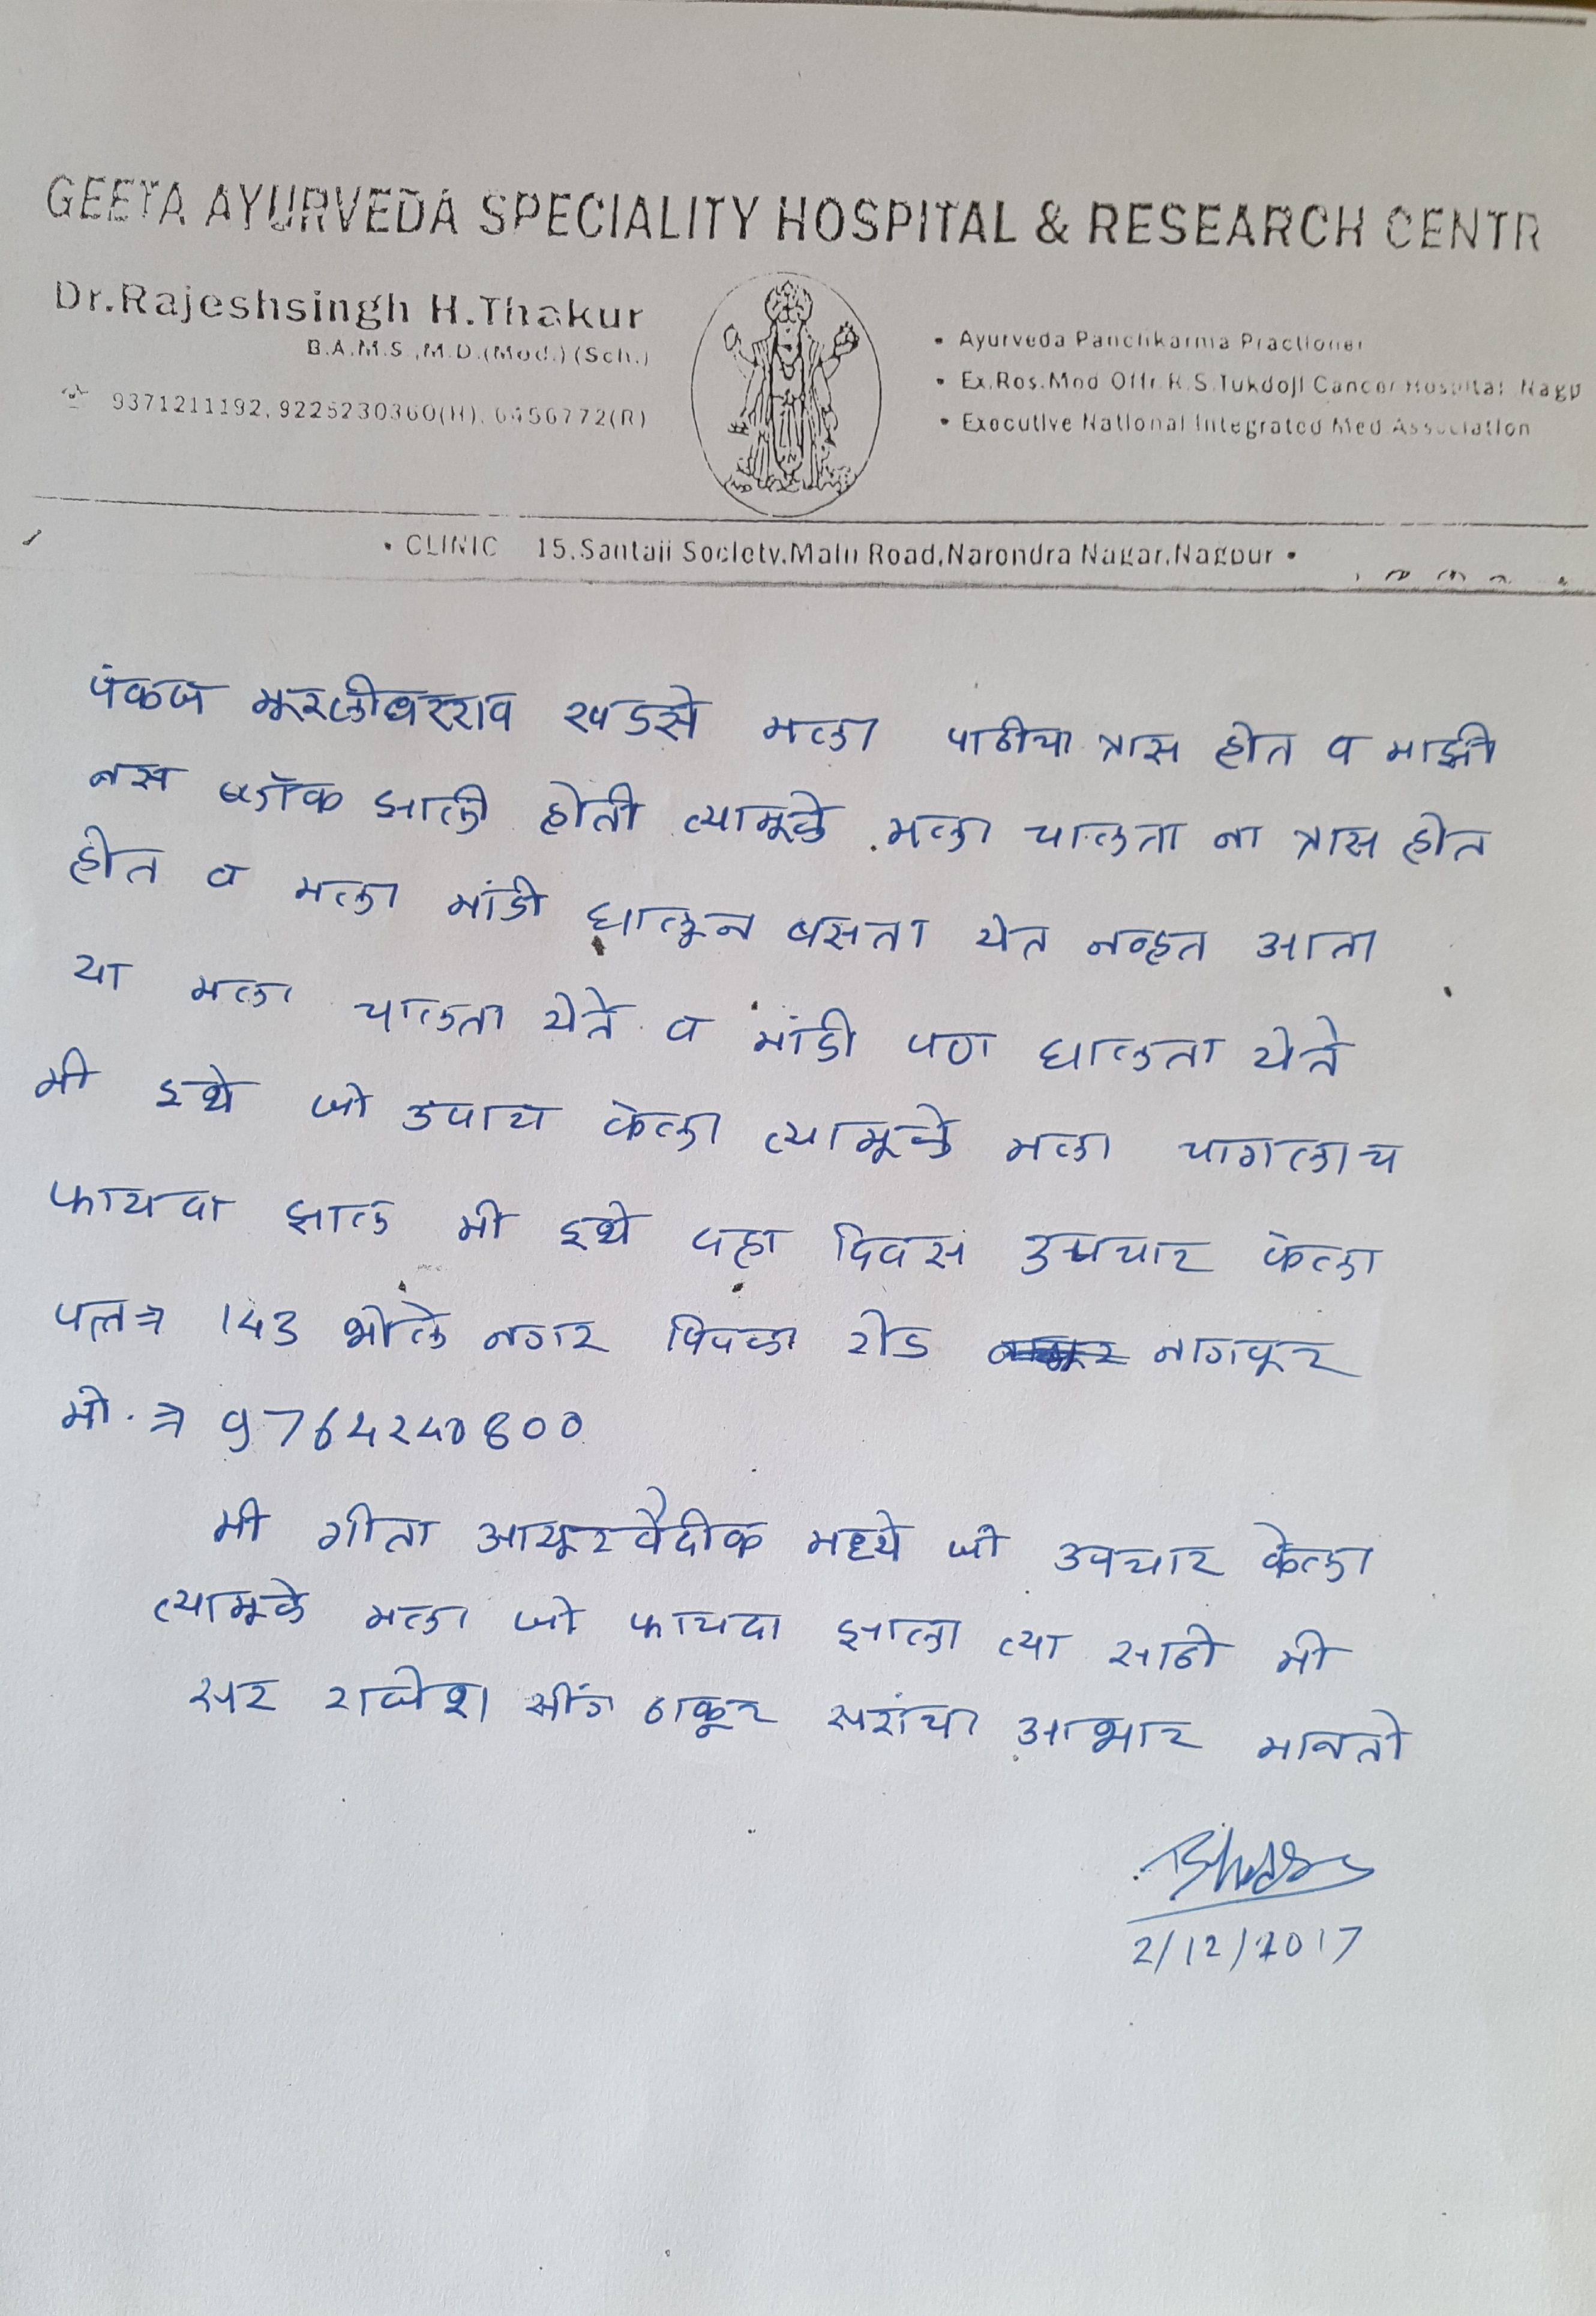 GEETA AYURVEDA SPECIALITY HOSPITAL & RESEARCH CENTR
Dr.Rajeshsingh H.Thakur
B.A.M.S.,M.D.(Med.)(Sch.)
9371211192, 9225230360(H), 6456772(R)
• Ayurveda Panchkarma Practioner
• Ex.Res.Med Offr.R.S.Tukdoji Cancer Hospital Nagp
• Executive National Integrated Med Association
• CLINIC 15,Santaji Society,Main Road,Narendra Nagar,Nagpur •
पंकज मूरलीधरराव खडसे मला पाठीचा त्रास होत व माझी
नस ब्लॉक झाली होती त्यामूळे मला चालता ना त्रास होत
होत व मला मांडी घालून बसता येत नव्हत आता
या मला चालता येते व मांडी पण घालता येते
मी इथे जो उपाय केला त्यामूळे मला चागलाच
फायदा झाल मी इथे दहा दिवस उपचार केला
143 भोले नगर पिपळा रोड नागपूर
मो. न 9764240800
मी गीता आयूरवैदीक मध्ये जो उपचार केला
त्यामूळे मला जो फायदा झाला त्या साठी मी
सर राजेश सींग ठाकूर सरांचा आभार मानतो
2/12/2017